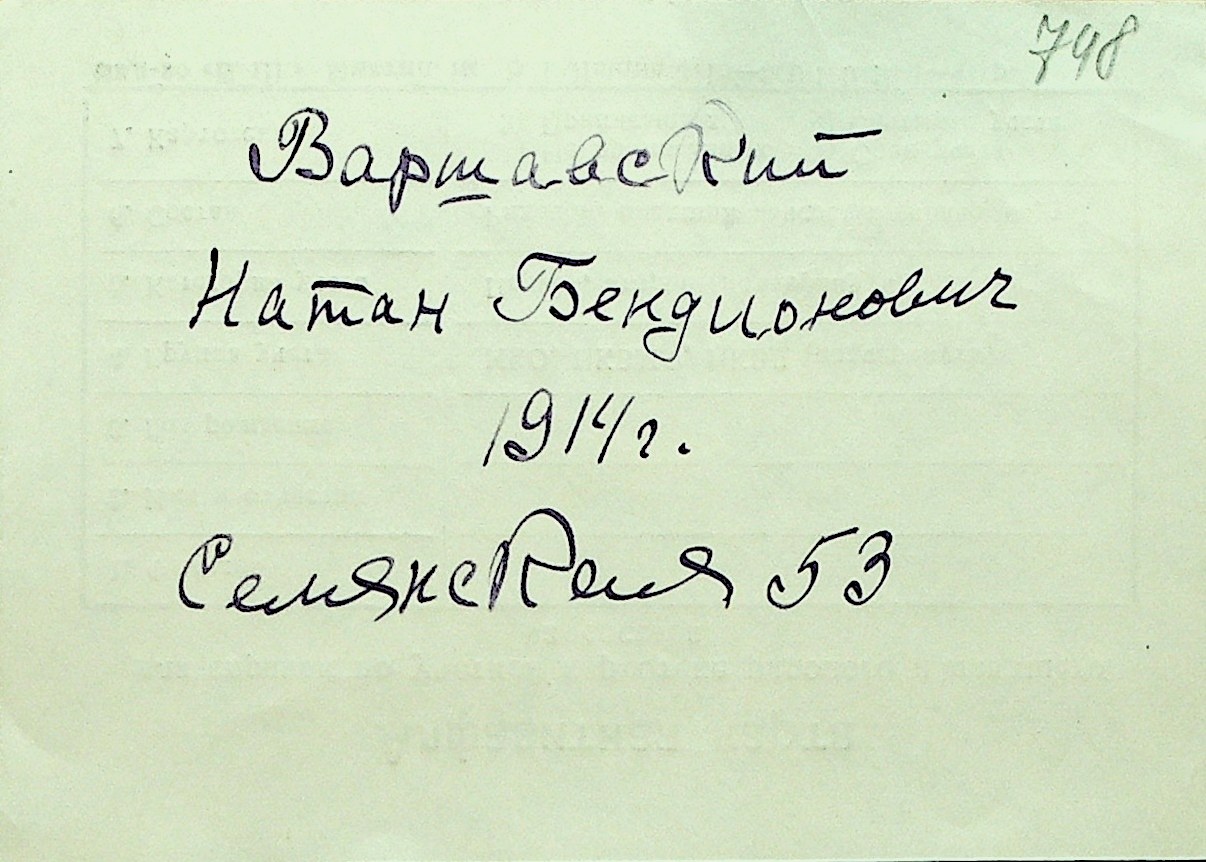 798
Варшавский
Натан Бендионович
1914 г.
Семянская 53